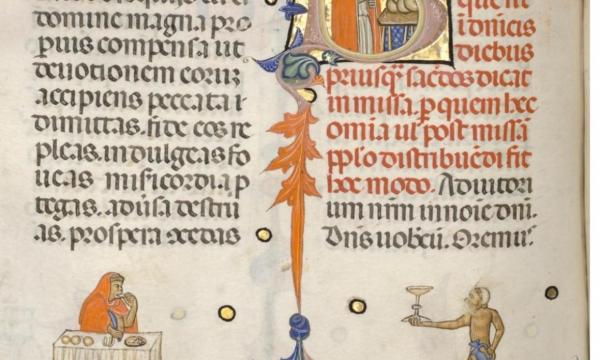 domine magna pro
puis compensa ut
deuotionem coruz
accipiens peccata i
dimittas. fide cos re
pleas. indulgeas fo
ueas misericordia p
tegas. aduisa destru
as. prospera ccedas
que fit
i dnicis
diebus
priusqr sacdos dicat
in missa. p quem hec
omia ul post missā
pplo distribuēdi fit
hoc modo. Adiutori
um nrm in noīe dni.
Dn̄s uobcū. Oremus.